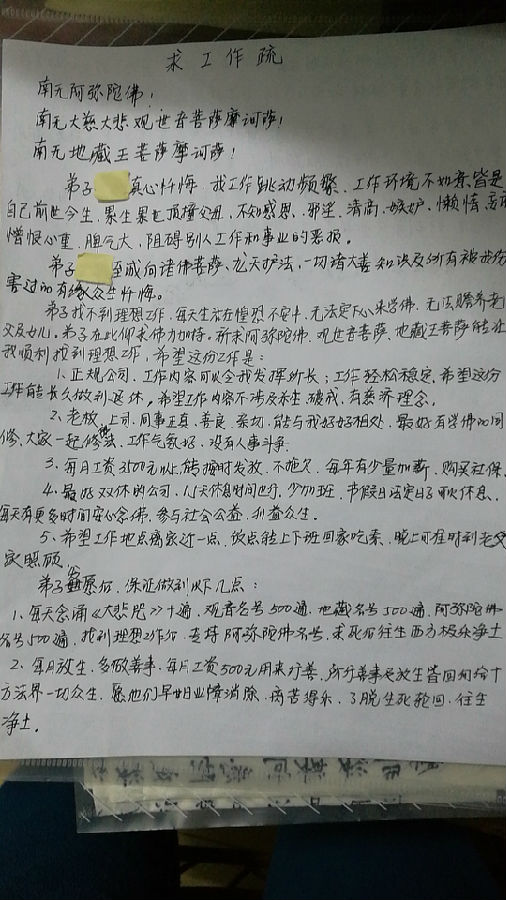 求工作疏
南无阿弥陀佛！
南无大慈大悲观世音菩萨摩诃萨！
南无地藏王菩萨摩诃萨！
弟子 真心忏悔，我工作跳动频繁、工作环境不如意皆是
自己前世今生，累生累世顶撞父母、不知感恩、邪淫、清高、嫉妒、懒惰、
憎恨心重、脾气大、阻碍别人工作和事业的恶报。
弟子 至诚向诸佛菩萨、龙天护法、一切诸大善知识及所有被我伤
害过的有缘众生忏悔。
弟子找不到理想工作，每天生活在惶恐不安中，无法定下心来学佛、无法赡养老
父及女儿。弟子在此仰求佛力加持。祈求阿弥陀佛、观世音菩萨、地藏王菩萨能让
我顺利找到理想工作，希望这份工作是：
1、正规公司，工作内容可以令我发挥所长；工作轻松稳定，希望这份
工作能长久做到退休。希望工作内容不涉及杀生、破戒，有慈济理念。
2、老板、上司、同事正直、善良、亲切，能与我好好相处，最好有学佛的同
修，大家一起修，工作气氛好，没有人事斗争。
3、每月工资3500元以上，能按时发放，不拖欠，每年有少量加薪，购买社保。
4、最好双休的公司，1.5天休息时间也行，少加班，节假日法定日子可以休息，
每天有更多时间安心念佛，参与社会公益，利益众生。
5、希望工作地点离家近一点，放点钟上下班回家吃素，晚上可准时到老父
家照顾。
弟子 愿后，保证做到以下几点：
1、每天念诵《大悲咒》十遍，观音名号500遍，地藏名号500遍，阿弥陀佛
名号500遍，找到理想工作后，专持阿弥陀佛名号，求死后往生西方极乐净土
2、每月放生，多做善事，每月工资500元用来行善，所行善事及放生皆回向给十
方法界一切众生，愿他们早日业障消除，离苦得乐，了脱生死轮回，往生
净土。